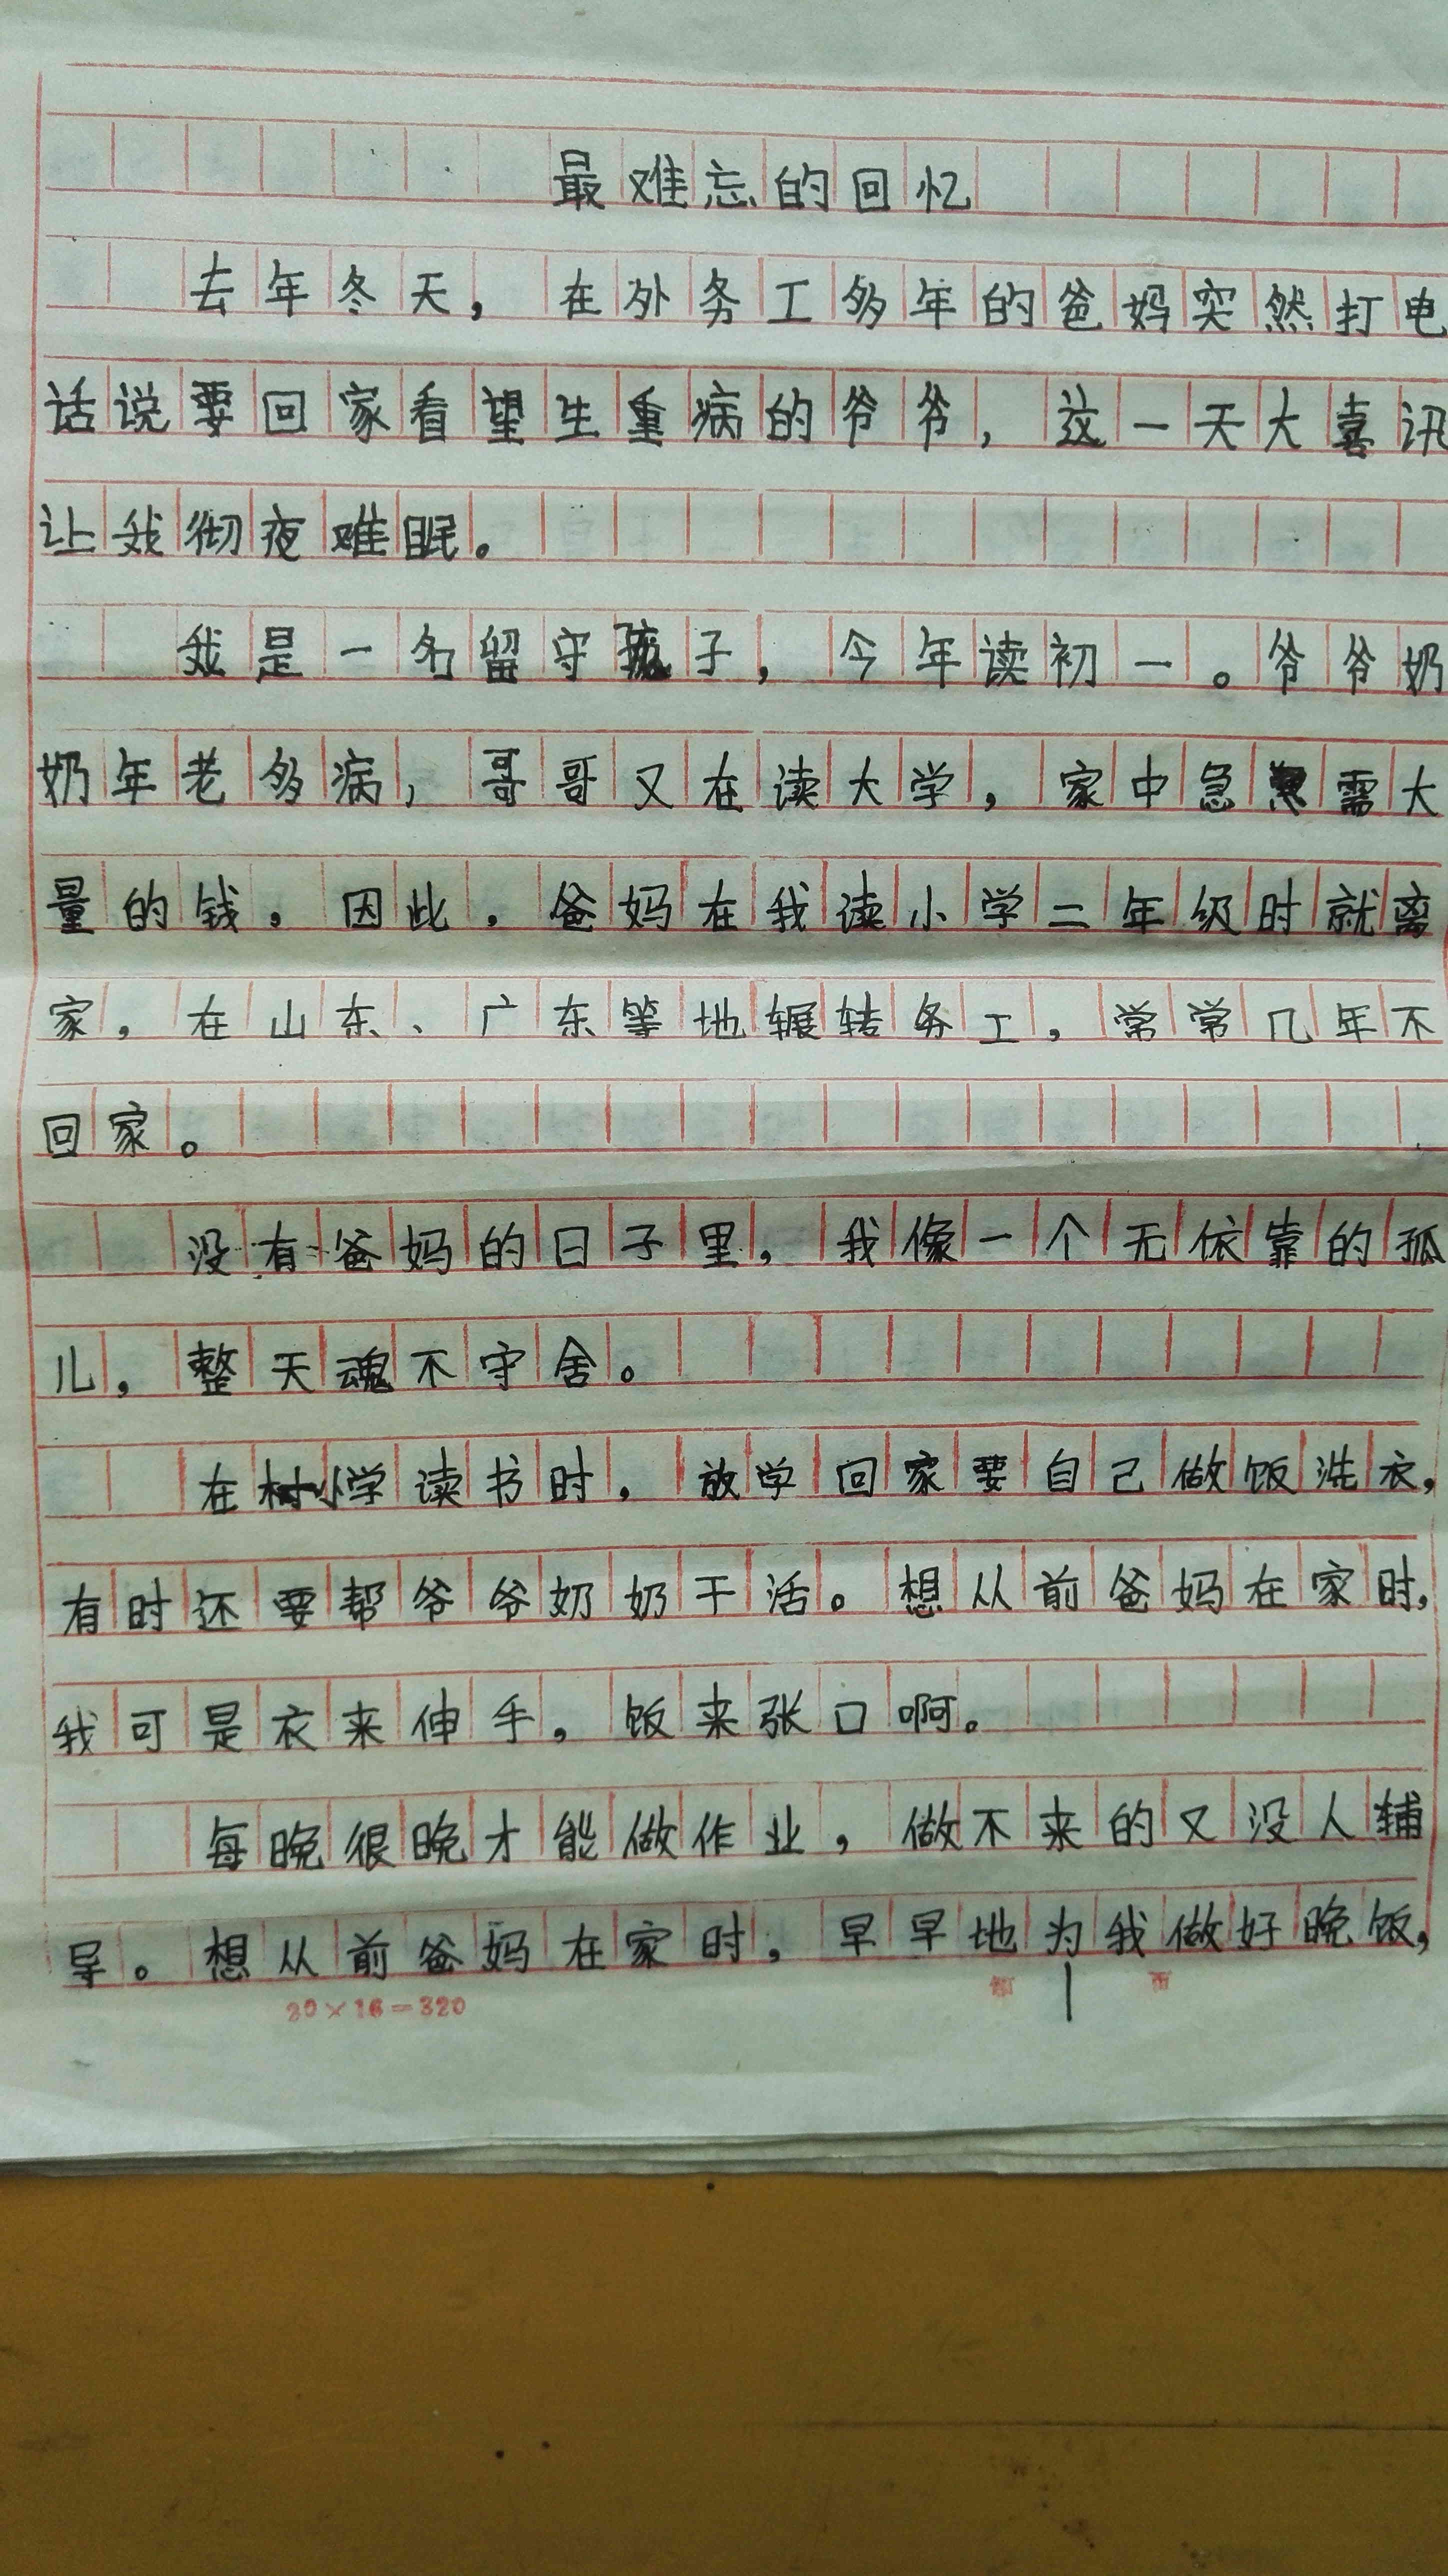 最难忘的回忆
去年冬天，在外务工多年的爸妈突然打电
话说要回家看望生重病的爷爷，这一天大喜讯
让我彻夜难眠。
我是一名留守孩子，今年读初一。爷爷奶
奶年老多病，哥哥又在读大学，家中急需大
量的钱，因此，爸妈在我读小学二年级时就离
家，在山东、广东等地辗转务工，常常几年不
回家。
没有爸妈的日子里，我像一个无依靠的孤
儿，整天魂不守舍。
在村小学读书时，放学回家要自己做饭洗衣，
有时还要帮爷爷奶奶干活。想从前爸妈在家时，
我可是衣来伸手，饭来张口啊。
每晚很晚才能做作业，做不来的又没人辅
导。想从前爸妈在家时，早早地为我做好晚饭，
20×16=320 1